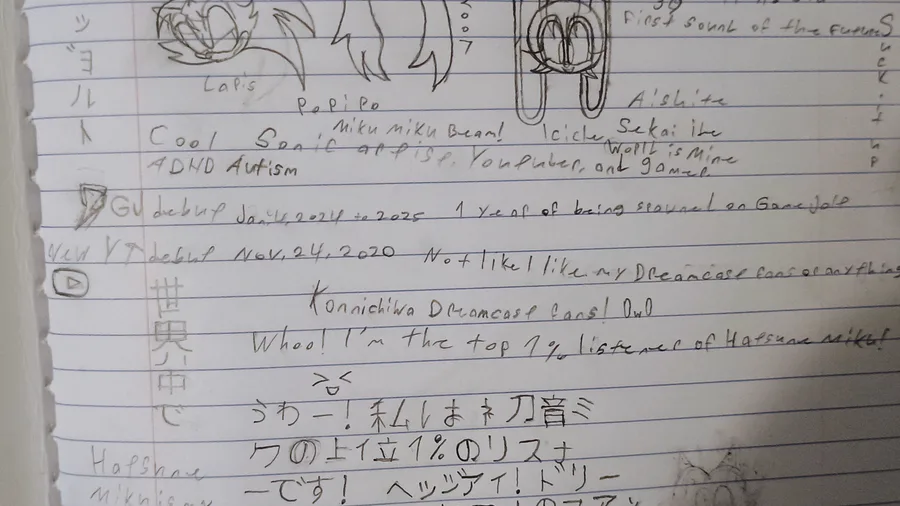 First sound of the Future
Lapis
PoPiPo
Aishite
Miku Miku Beam!
Icicle, Sekai ihc
World is mine
Cool Sonic artist, YouTuber, and gamer
ADHD Autism
GJ debut Jan 14, 2024 to 2025 1 year of being spawned on GameJolt
New YT debut Nov, 24, 2020 Not like I like my Dreamcase fans or anything
Konnichiwa Dreamcase fans! OwO
Whoo! I'm the top 1% listener of Hatsune Miku!
うわー!私はネ刀音ミ
クの上イ立1%のリスナ
ーです! ヘッジアイ!ドリー
世界中で
Suck it up
ッ
ヨ
ル
イ
Hatsune